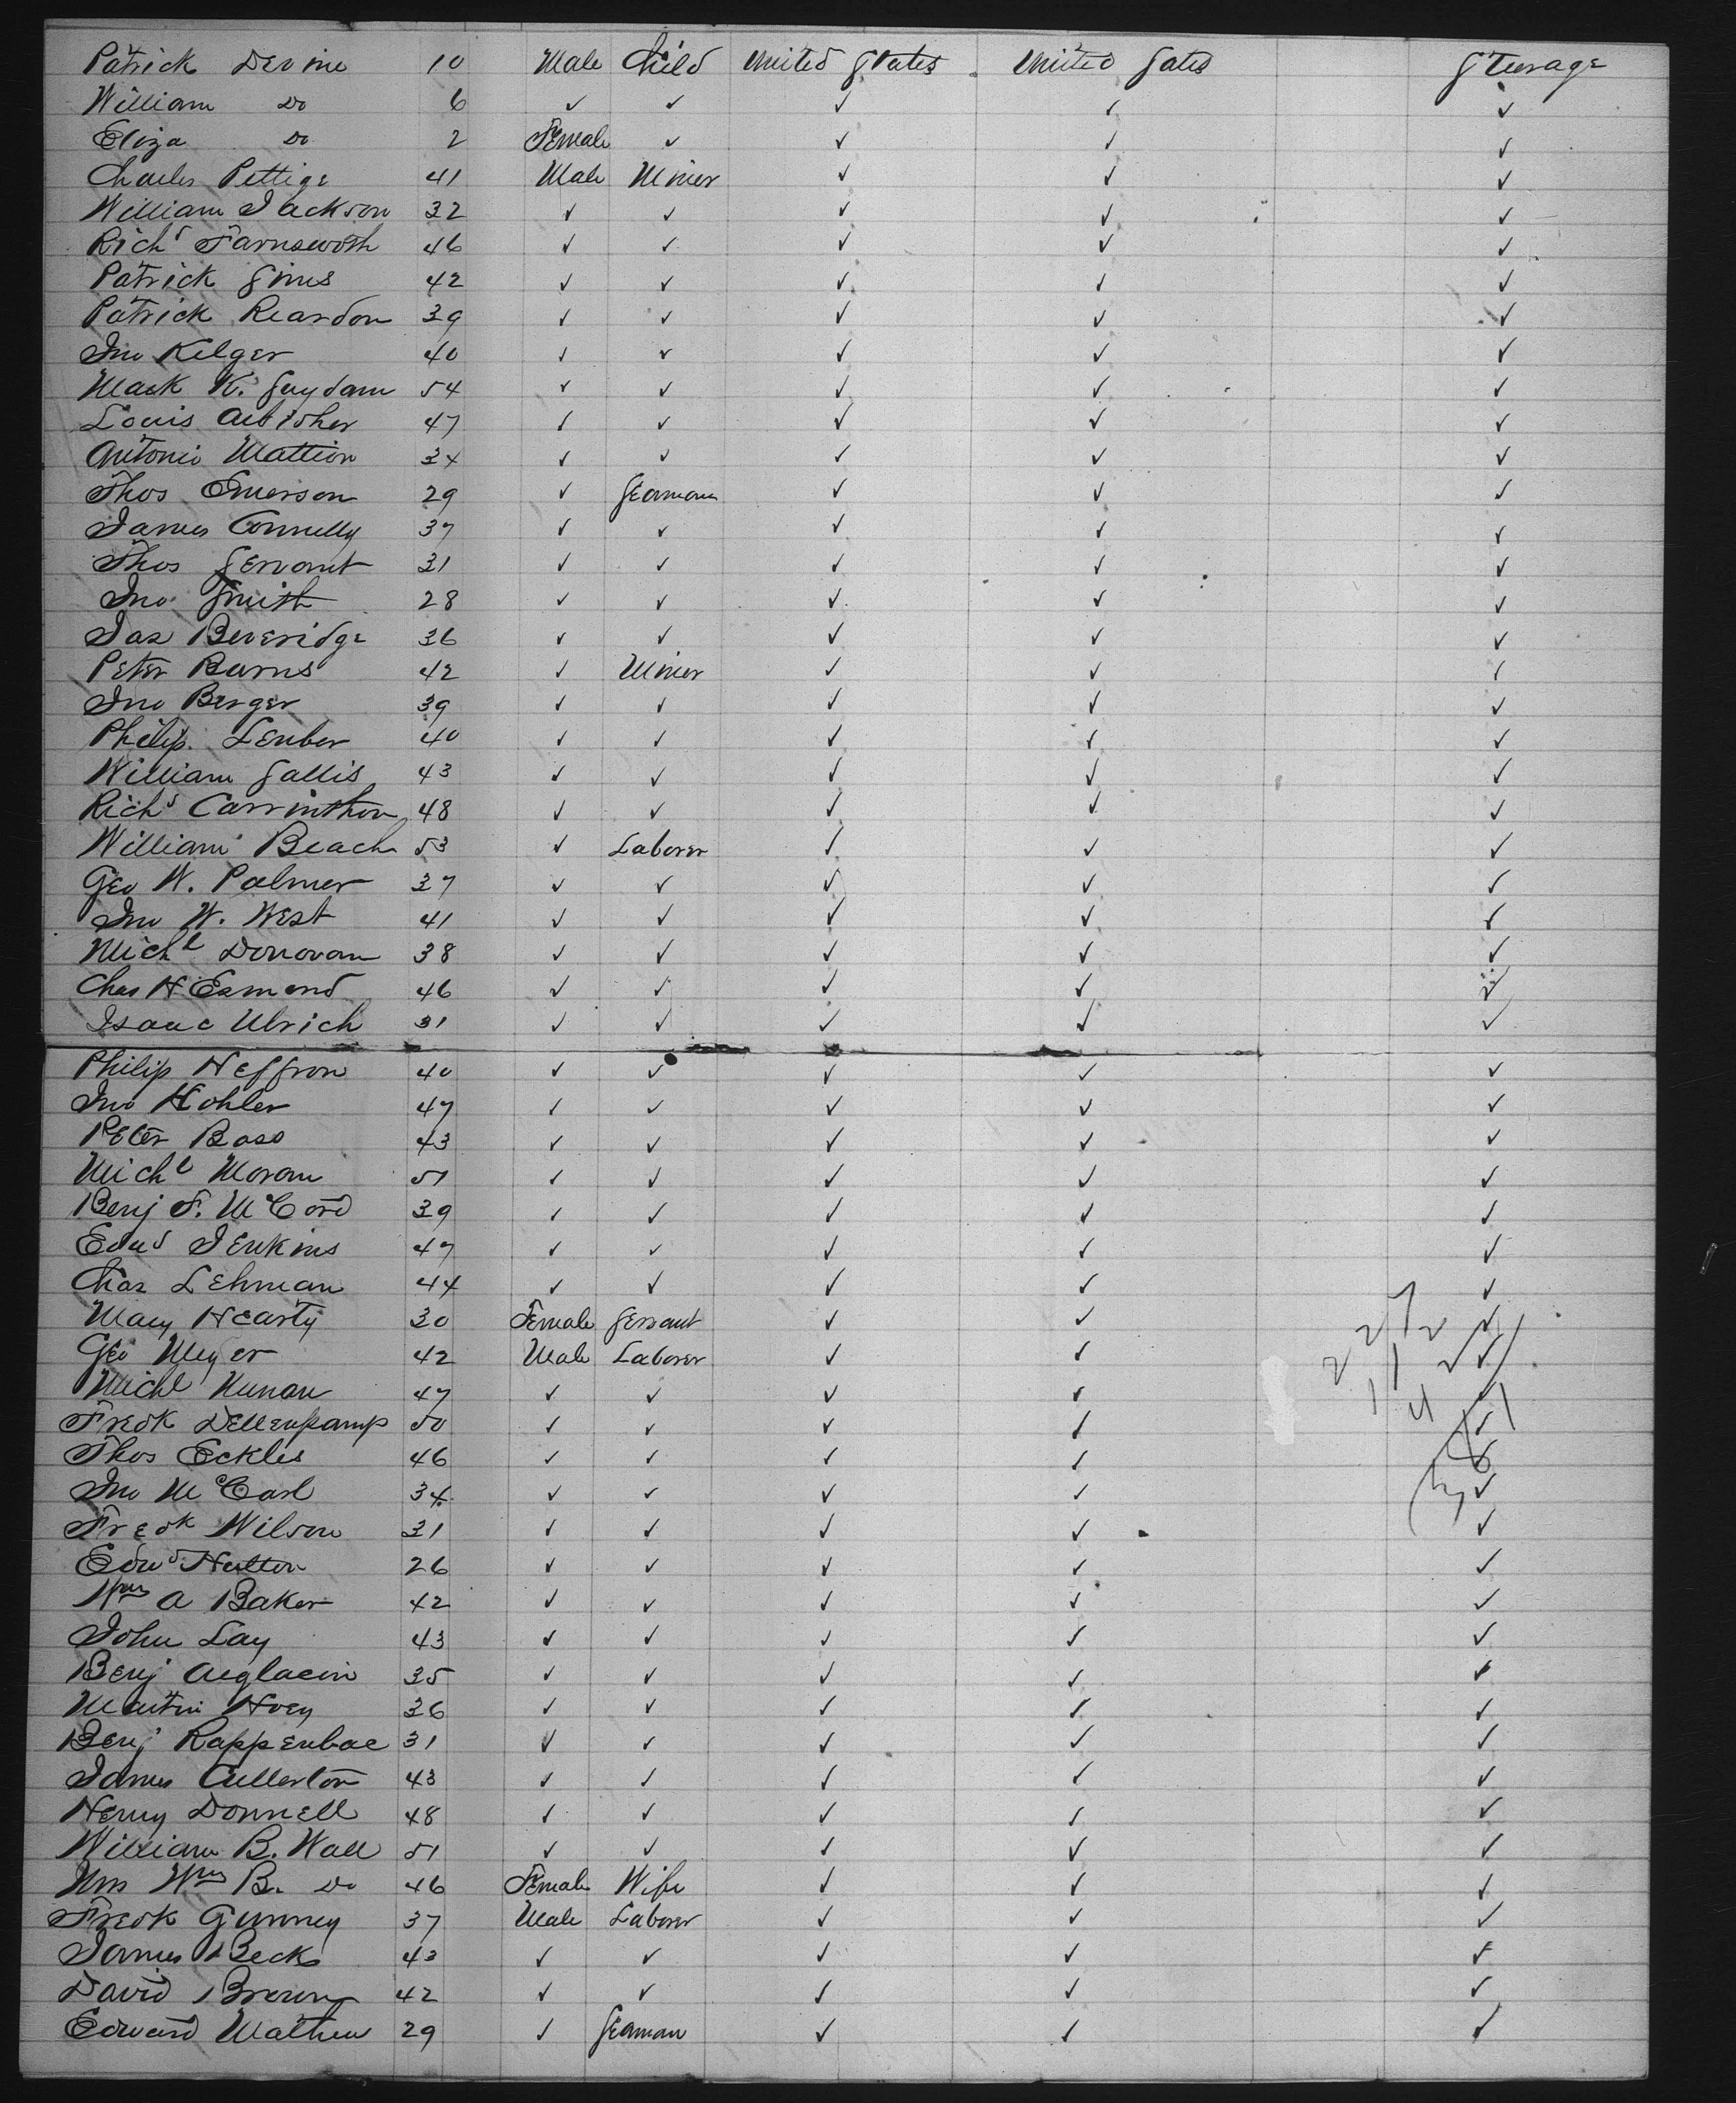 Patrick Devine 10 Male Child United States United States Steerage
William Do 6 ✓ ✓ ✓ ✓ ✓
Eliza Do 2 Female ✓ ✓ ✓ ✓
Charles Pettige 41 Male Miner ✓ ✓ ✓
William Jackson 32 ✓ ✓ ✓ ✓ ✓
Richd Farnsworth 46 ✓ ✓ ✓ ✓ ✓
Patrick Sims 42 ✓ ✓ ✓ ✓ ✓
Patrick Reardon 39 ✓ ✓ ✓ ✓ ✓
Jno Kelger 40 ✓ ✓ ✓ ✓ ✓
Mark K. Suydam 54 ✓ ✓ ✓ ✓ ✓
Louis 47 ✓ ✓ ✓ ✓ ✓
Antonio Mattion 34 ✓ ✓ ✓ ✓ ✓
Thos Emerson 29 ✓ Seaman ✓ ✓ ✓
James Connelly 37 ✓ ✓ ✓ ✓ ✓
Thos Servant 31 ✓ ✓ ✓ ✓ ✓
Jno Smith 28 ✓ ✓ ✓ ✓ ✓
Jas Beveridge 36 ✓ ✓ ✓ ✓ ✓
Peter Burns 42 ✓ Miner ✓ ✓ ✓
Jno Berger 39 ✓ ✓ ✓ ✓ ✓
Philip Leuber 40 ✓ ✓ ✓ ✓ ✓
William Sallis 43 ✓ ✓ ✓ ✓ ✓
Richd Carrinthon 48 ✓ ✓ ✓ ✓ ✓
William Beach 53 ✓ Laborer ✓ ✓ ✓
Geo W. Palmer 37 ✓ ✓ ✓ ✓ ✓
Jno W. West 41 ✓ ✓ ✓ ✓ ✓
Michl Donovan 38 ✓ ✓ ✓ ✓ ✓
Chas H Esmond 46 ✓ ✓ ✓ ✓ ✓
Isaac Ulrich 31 ✓ ✓ ✓ ✓ ✓
Philip Heffron 40 ✓ ✓ ✓ ✓ ✓
Jno Kohler 47 ✓ ✓ ✓ ✓ ✓
Peter Bass 43 ✓ ✓ ✓ ✓ ✓
Michl Moran 51 ✓ ✓ ✓ ✓ ✓
Benj F. McCord 39 ✓ ✓ ✓ ✓ ✓
Edwd Jenkins 47 ✓ ✓ ✓ ✓ ✓
Chas Lehman 44 ✓ ✓ ✓ ✓ ✓
Mary Hearty 30 Female Servant ✓ ✓ ✓
Geo Meyer 42 Male Laborer ✓ ✓ ✓
Michl Nunan 47 ✓ ✓ ✓ ✓ ✓
Fredk Dellenkamp 50 ✓ ✓ ✓ ✓ ✓
Thos Eckles 46 ✓ ✓ ✓ ✓ ✓
Jno McCarl 34 ✓ ✓ ✓ ✓ ✓
Fredk Wilson 31 ✓ ✓ ✓ ✓ ✓
Edwd Hutton 26 ✓ ✓ ✓ ✓ ✓
Wm A Baker 42 ✓ ✓ ✓ ✓ ✓
John Lay 43 ✓ ✓ ✓ ✓ ✓
Benj 35 ✓ ✓ ✓ ✓ ✓
Martin Hoey 36 ✓ ✓ ✓ ✓ ✓
Benj Rappenbac 31 ✓ ✓ ✓ ✓ ✓
James Cullerton 43 ✓ ✓ ✓ ✓ ✓
Henry Donnell 48 ✓ ✓ ✓ ✓ ✓
William B. Wall 51 ✓ ✓ ✓ ✓ ✓
Mrs Wm B. Do 46 Female Wife ✓ ✓ ✓
Fredk Gunney 37 Male Laborer ✓ ✓ ✓
James Beck 43 ✓ ✓ ✓ ✓ ✓
David Brown 42 ✓ ✓ ✓ ✓ ✓
Edward Mathew 29 ✓ Seaman ✓ ✓ ✓